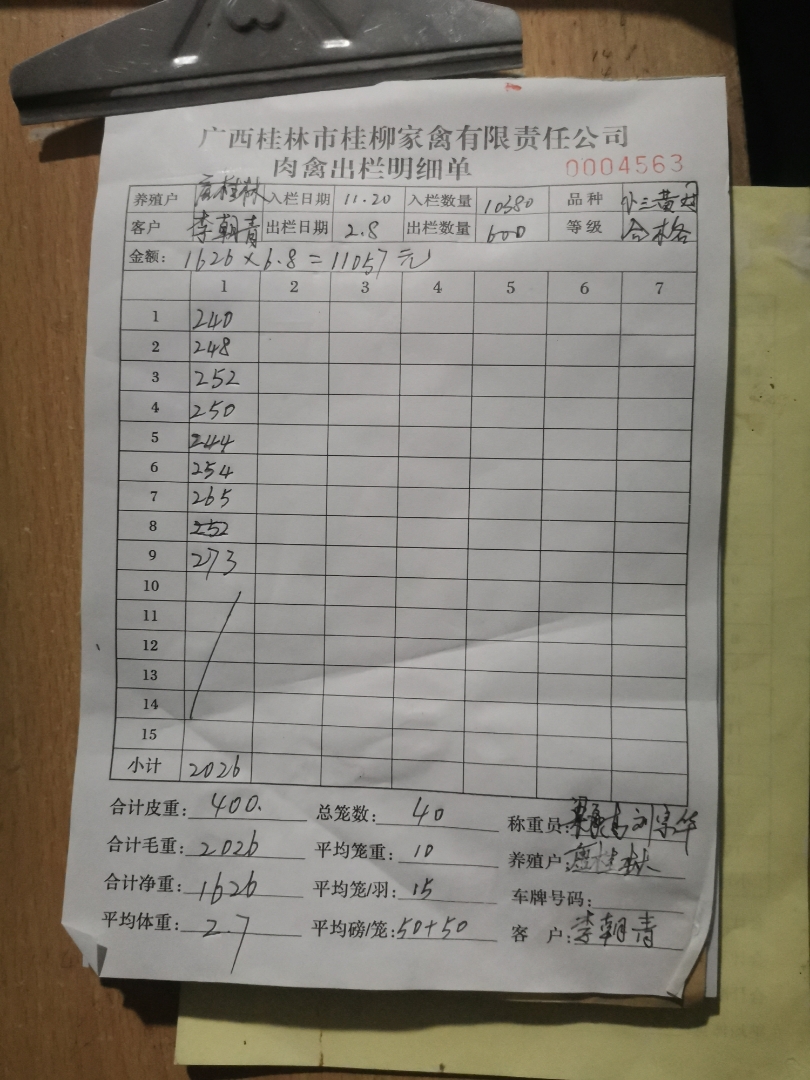 广西桂林市桂柳家禽有限责任公司
肉禽出栏明细单 0004563
养殖户 桂林 入栏日期 11.20 入栏数量 10380 品种 小三黄
客户 李朝青 出栏日期 2.8 出栏数量 600 等级 合格
金额: 1626×6.8=11057元
1 2 3 4 5 6 7
1 240
2 248
3 252
4 250
5 244
6 254
7 265
8 252
9 273
10
11
12
13
14
15
小计 2026
合计皮重: 400. 总笼数: 40 称重员: 刘宗华
合计毛重: 2026 平均笼重: 10 养殖户: 桂林
合计净重: 1626 平均笼/羽: 15 车牌号码:
平均体重: 2.7 平均磅/笼: 50+50 客 户: 李朝青